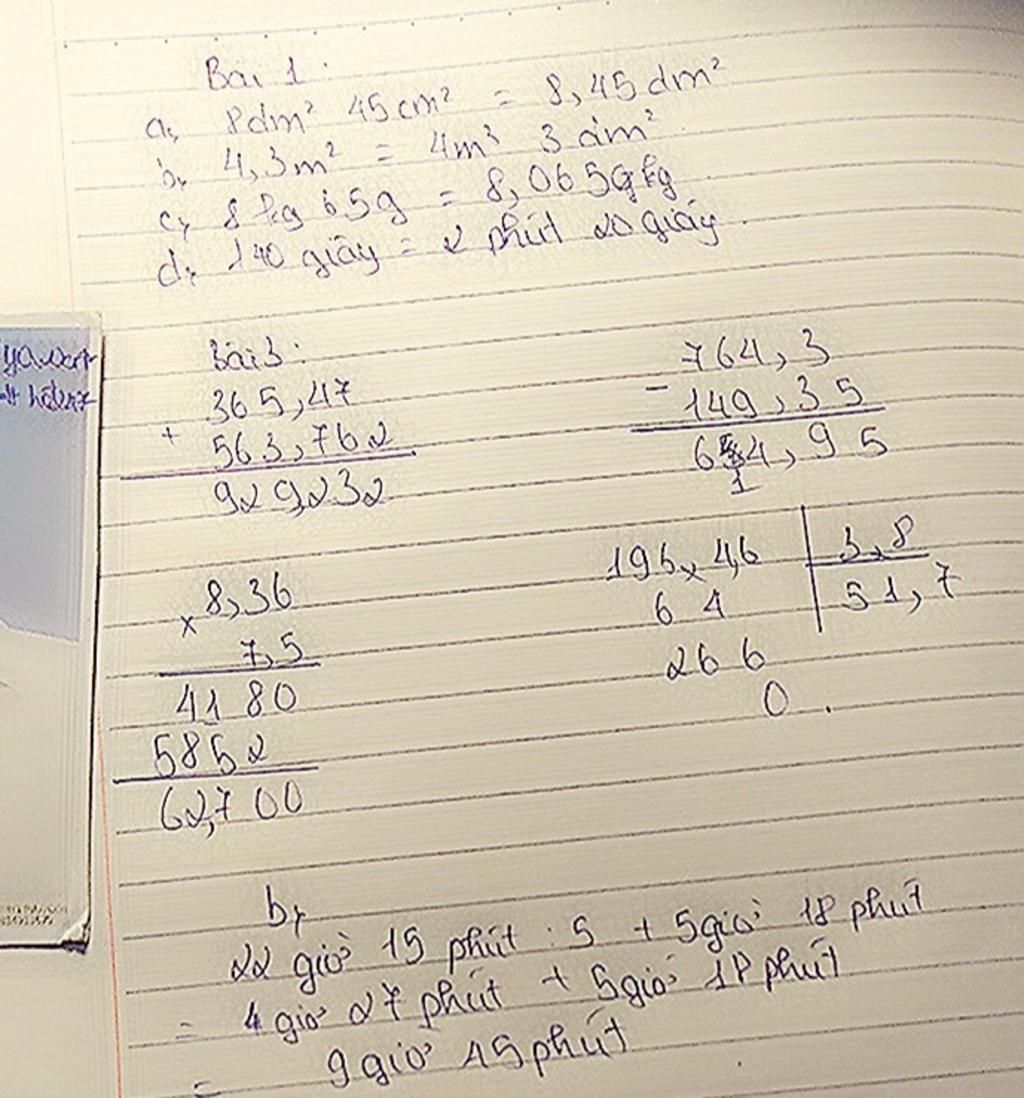 Bài 1:
a, 8dm² 45cm² = 8,45dm²
b, 4,3m² = 4m³ 3dm²
c, 8kg 65g = 8,065 kg
d, 140 giây = 2 phút 20 giây.
Bài 3:
365,47
+ 563,762
929,232
764,3
- 149,35
614,95
× 8,36
7,5
4180
5852
62,700
196,46 3,8
64 51,7
266
0.
b,
22 giờ 15 phút : 5 + 5 giờ 18 phút
= 4 giờ 27 phút + 5 giờ 18 phút
= 9 giờ 45 phút